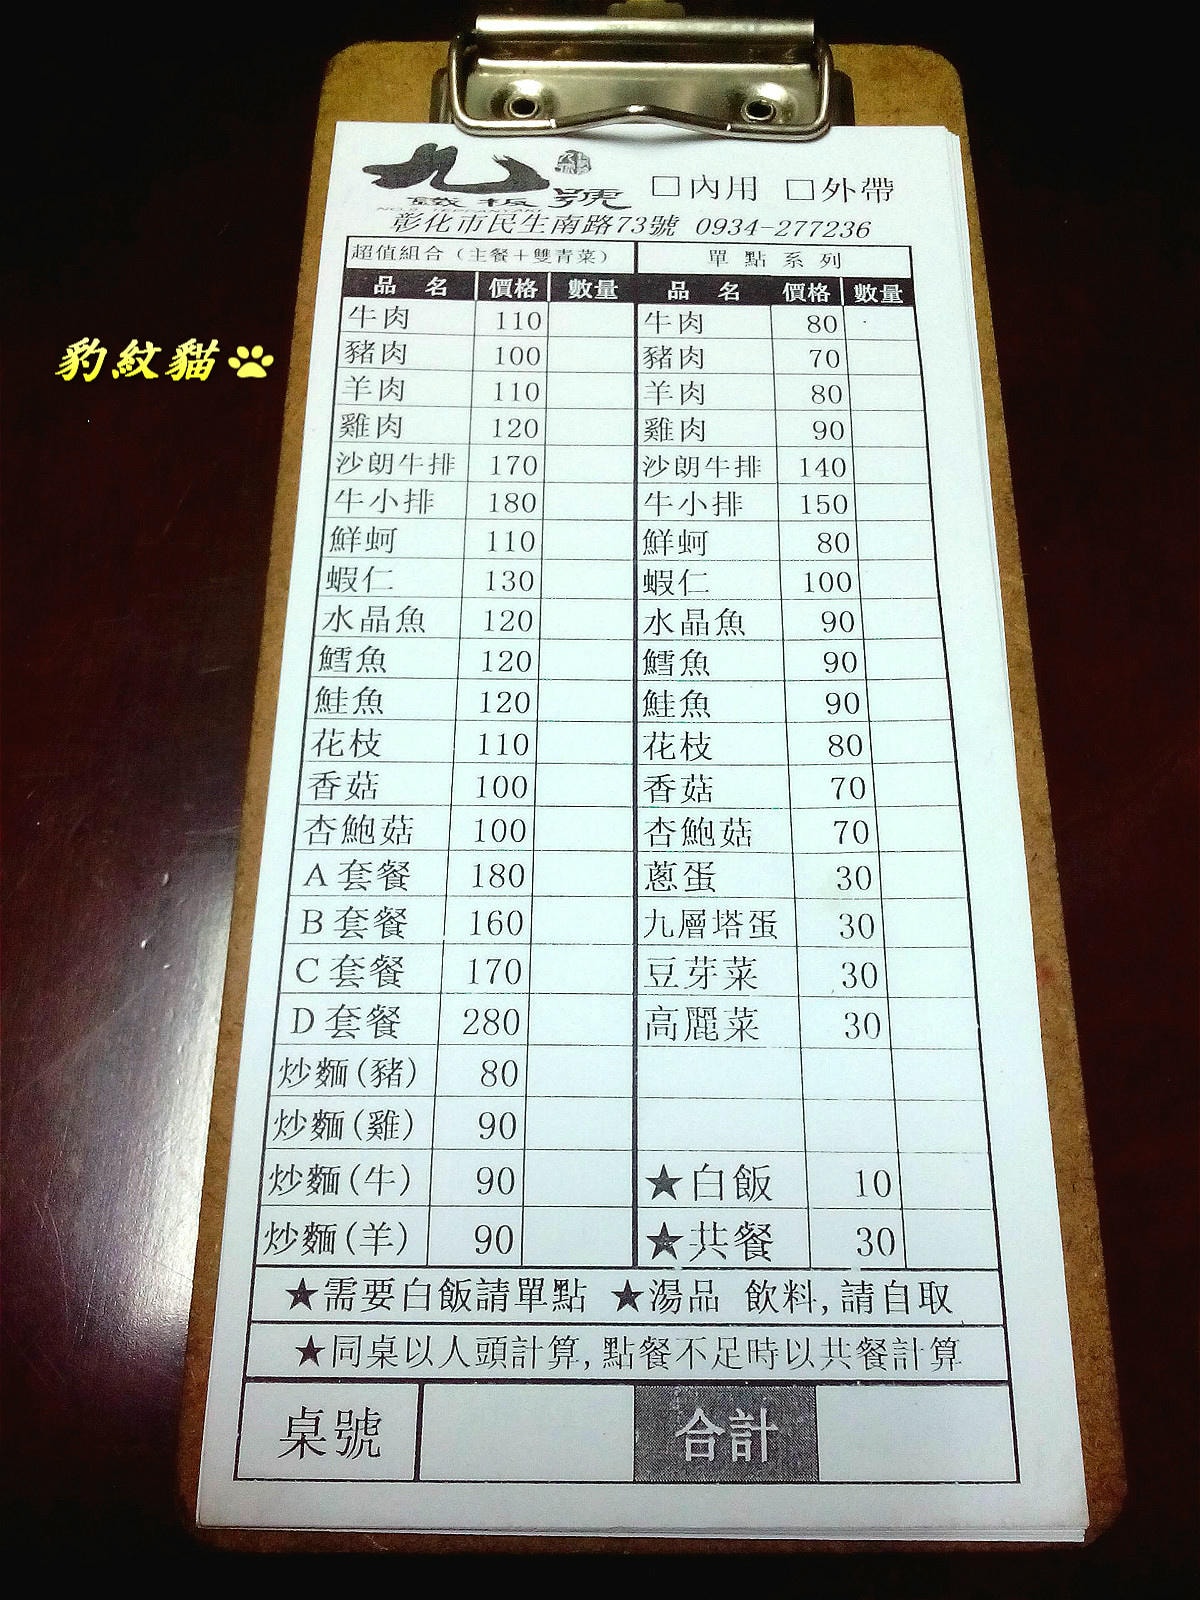 九號
鐵板
□內用 □外帶
彰化市民生南路73號 0934-277236
超值組合(主餐+雙青菜) 單點系列
品名 價格 數量 品名 價格 數量
牛肉 110 牛肉 80
豬肉 100 豬肉 70
羊肉 110 羊肉 80
雞肉 120 雞肉 90
沙朗牛排 170 沙朗牛排 140
牛小排 180 牛小排 150
鮮蚵 110 鮮蚵 80
蝦仁 130 蝦仁 100
水晶魚 120 水晶魚 90
鱈魚 120 鱈魚 90
鮭魚 120 鮭魚 90
花枝 110 花枝 80
香菇 100 香菇 70
杏鮑菇 100 杏鮑菇 70
A套餐 180 蔥蛋 30
B套餐 160 九層塔蛋 30
C套餐 170 豆芽菜 30
D套餐 280 高麗菜 30
炒麵(豬) 80
炒麵(雞) 90
炒麵(牛) 90 ★白飯 10
炒麵(羊) 90 ★共餐 30
★需要白飯請單點 ★湯品 飲料,請自取
★同桌以人頭計算,點餐不足時以共餐計算
桌號 合計
豹紋貓